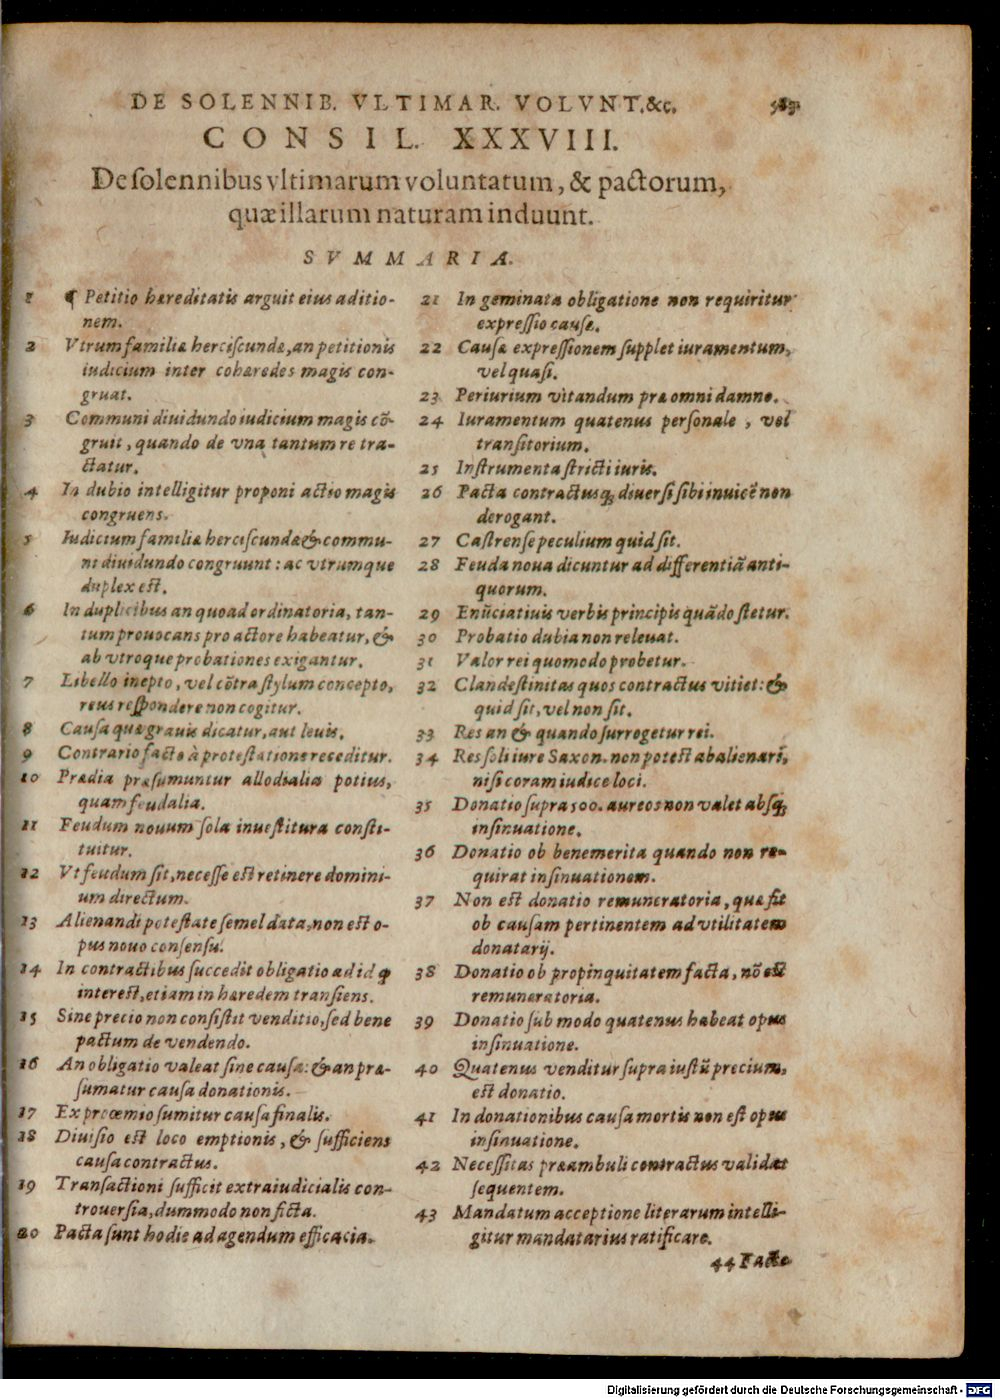 DE SOLENNIB. VLTIMAR. VOLVNT.&c. 583
CONSIL. XXXVIII.
De solennibus vltimarum voluntatum, & pactorum,
quæ illarum naturam induunt.
SVMMARIA.
1 ¶ Petitio hæreditatis arguit eius aditio-
nem.
2 Vtrum familiæ herciscundæ, an petitionis
iudicium inter cohæredes magis con-
gruat.
3 Communi diuidundo iudicium magis cõ-
gruit, quando de vna tantum re tra-
ctatur.
4 In dubio intelligitur proponi actio magis
congruens.
5 Iudicium familiæ herciscundæ & commu-
ni diuidundo congruunt: ac vtrumque
duplex est.
6 In duplicibus an quoad ordinatoria, tan-
tum prouocans pro actore habeatur, &
ab vtroque probationes exigantur.
7 Libello inepto, vel cõtra stylum concepto,
reus respondere non cogitur.
8 Causa quæ grauis dicatur, aut leuis.
9 Contrario facto à protestatione receditur.
10 Prædia præsumuntur allodialia potius,
quam feudalia.
11 Feudum nouum sola inuestitura consti-
tuitur.
12 Vt feudum sit, necesse est retinere domini-
um directum.
13 Alienandi potestate semel data, non est o-
pus nouo consensu.
14 In contractibus succedit obligatio ad id ꝙ
interest, etiam in hæredem transiens.
15 Sine precio non consistit venditio, sed bene
pactum de vendendo.
16 An obligatio valeat sine causa: & an præ-
sumatur causa donationis.
17 Ex proœmio sumitur causa finalis.
18 Diuisio est loco emptionis, & sufficiens
causa contractus.
19 Transactioni sufficit extraiudicialis con-
trouersia, dummodo non ficta.
20 Pacta sunt hodie ad agendum efficacia.
21 In geminata obligatione non requiritur
expressio causæ.
22 Causæ expressionem supplet iuramentum,
vel quasi.
23 Periurium vitandum præ omni damno.
24 Iuramentum quatenus personale, vel
transitorium.
25 Instrumenta stricti iuris.
26 Pacta contractusq; diuersi sibi inuicẽ non
derogant.
27 Castrense peculium quid sit.
28 Feuda noua dicuntur ad differentiã anti-
quorum.
29 Enũciatiuis verbis principis quãdo stetur.
30 Probatio dubia non releuat.
31 Valor rei quomodo probetur.
32 Clandestinitas quos contractus vitiet: &
quid sit, vel non sit.
33 Res an & quando surrogetur rei.
34 Res soli iure Saxon. non potest abalienari,
nisi coram iudice loci.
35 Donatio supra 500. aureos non valet absq;
insinuatione.
36 Donatio ob benemerita quando non re-
quirat insinuationem.
37 Non est donatio remuneratoria, quæ fit
ob causam pertinentem ad vtilitatem
donatarij.
38 Donatio ob propinquitatem facta, nõ est
remuneratoria.
39 Donatio sub modo quatenus habeat opus
insinuatione.
40 Quatenus venditur supra iustũ precium,
est donatio.
41 In donationibus causa mortis non est opus
insinuatione.
42 Necessitas præambuli contractus validat
sequentem.
43 Mandatum acceptione literarum intelli-
gitur mandatarius ratificare.
44 Facto
Digitalisierung gefördert durch die Deutsche Forschungsgemeinschaft - DFG